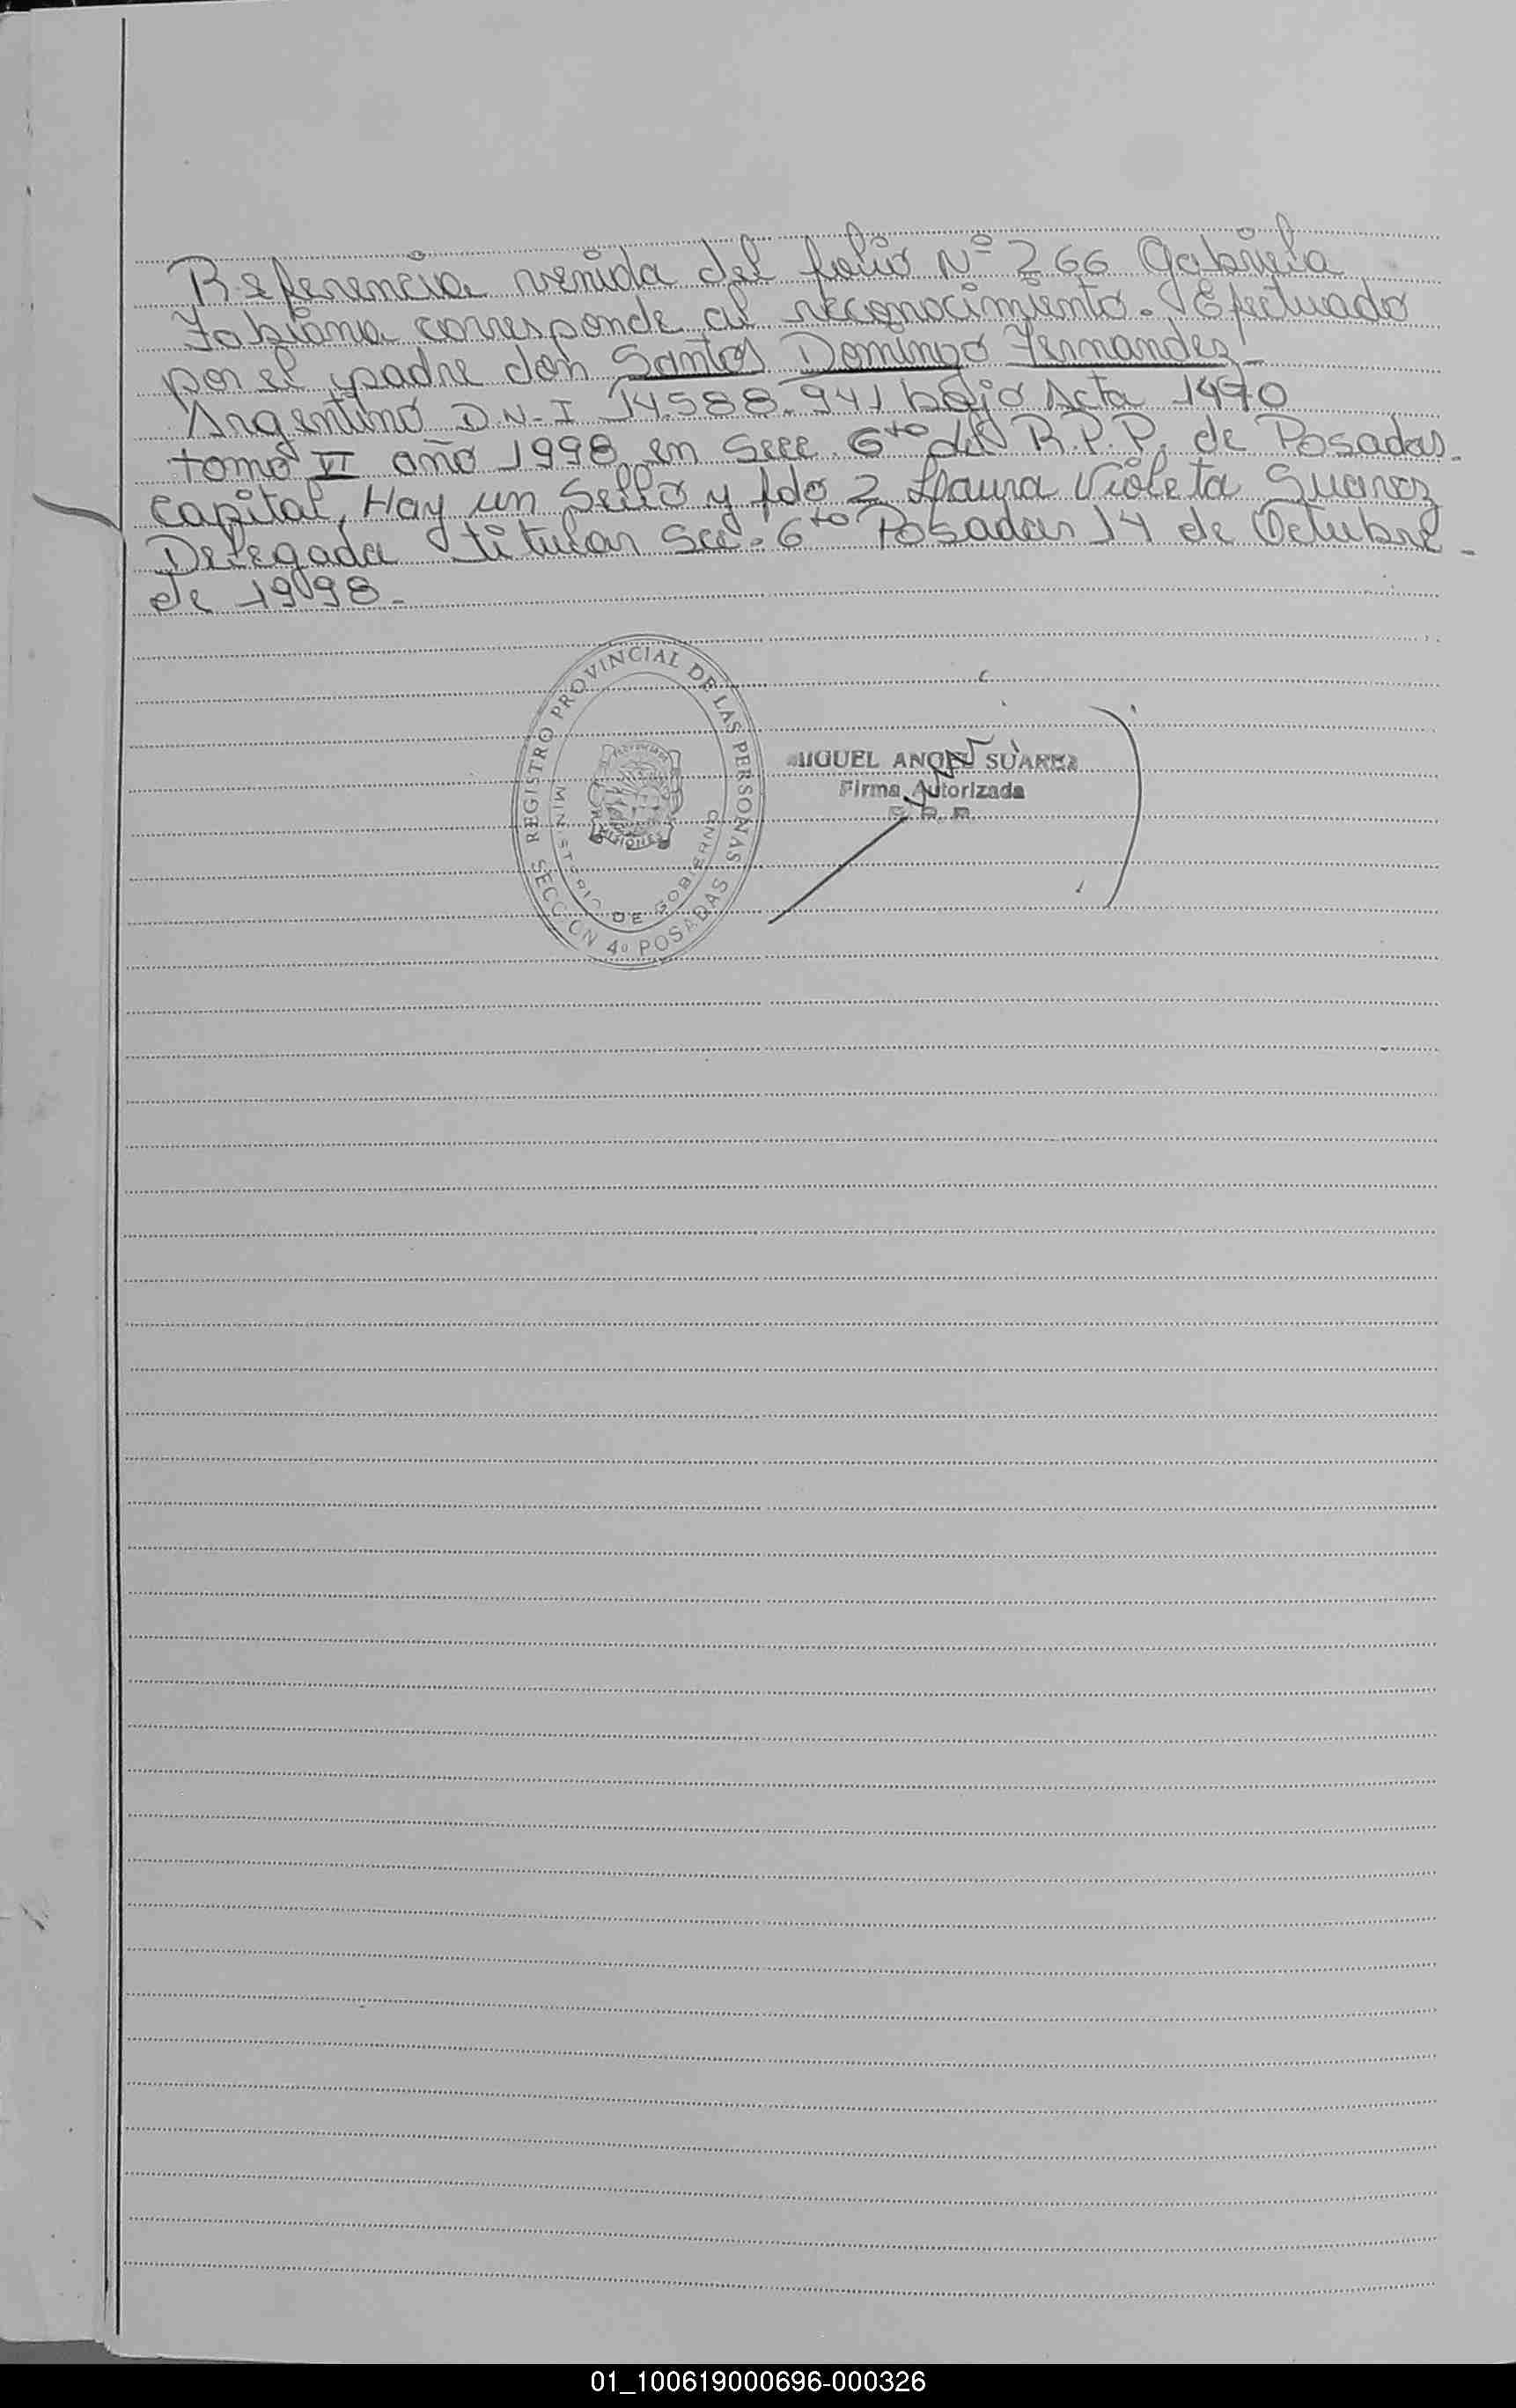 Referencia venida del folio Nº 266 Gabriela
Fabiana corresponde al reconocimiento. Efectuado
por el padre don Santos Domingo Fernandez -
Argentino D.N.I 14.588.941 bajo Acta 1470
tomo VI año 1998 en Secc. 6ta del R.P.P. de Posadas.
Capital, Hay un Sello y fdo 2 Laura Violeta Suarez
Delegada titular Sec. 6ta Posadas 14 de Octubre -
de 1998.-
REGISTRO PROVINCIAL DE LAS PERSONAS
MINISTERIO DE GOBIERNO
MISIONES
SECCION 4º POSADAS
MIGUEL ANGEL SUAREZ
Firma Autorizada
01_100619000696-000326